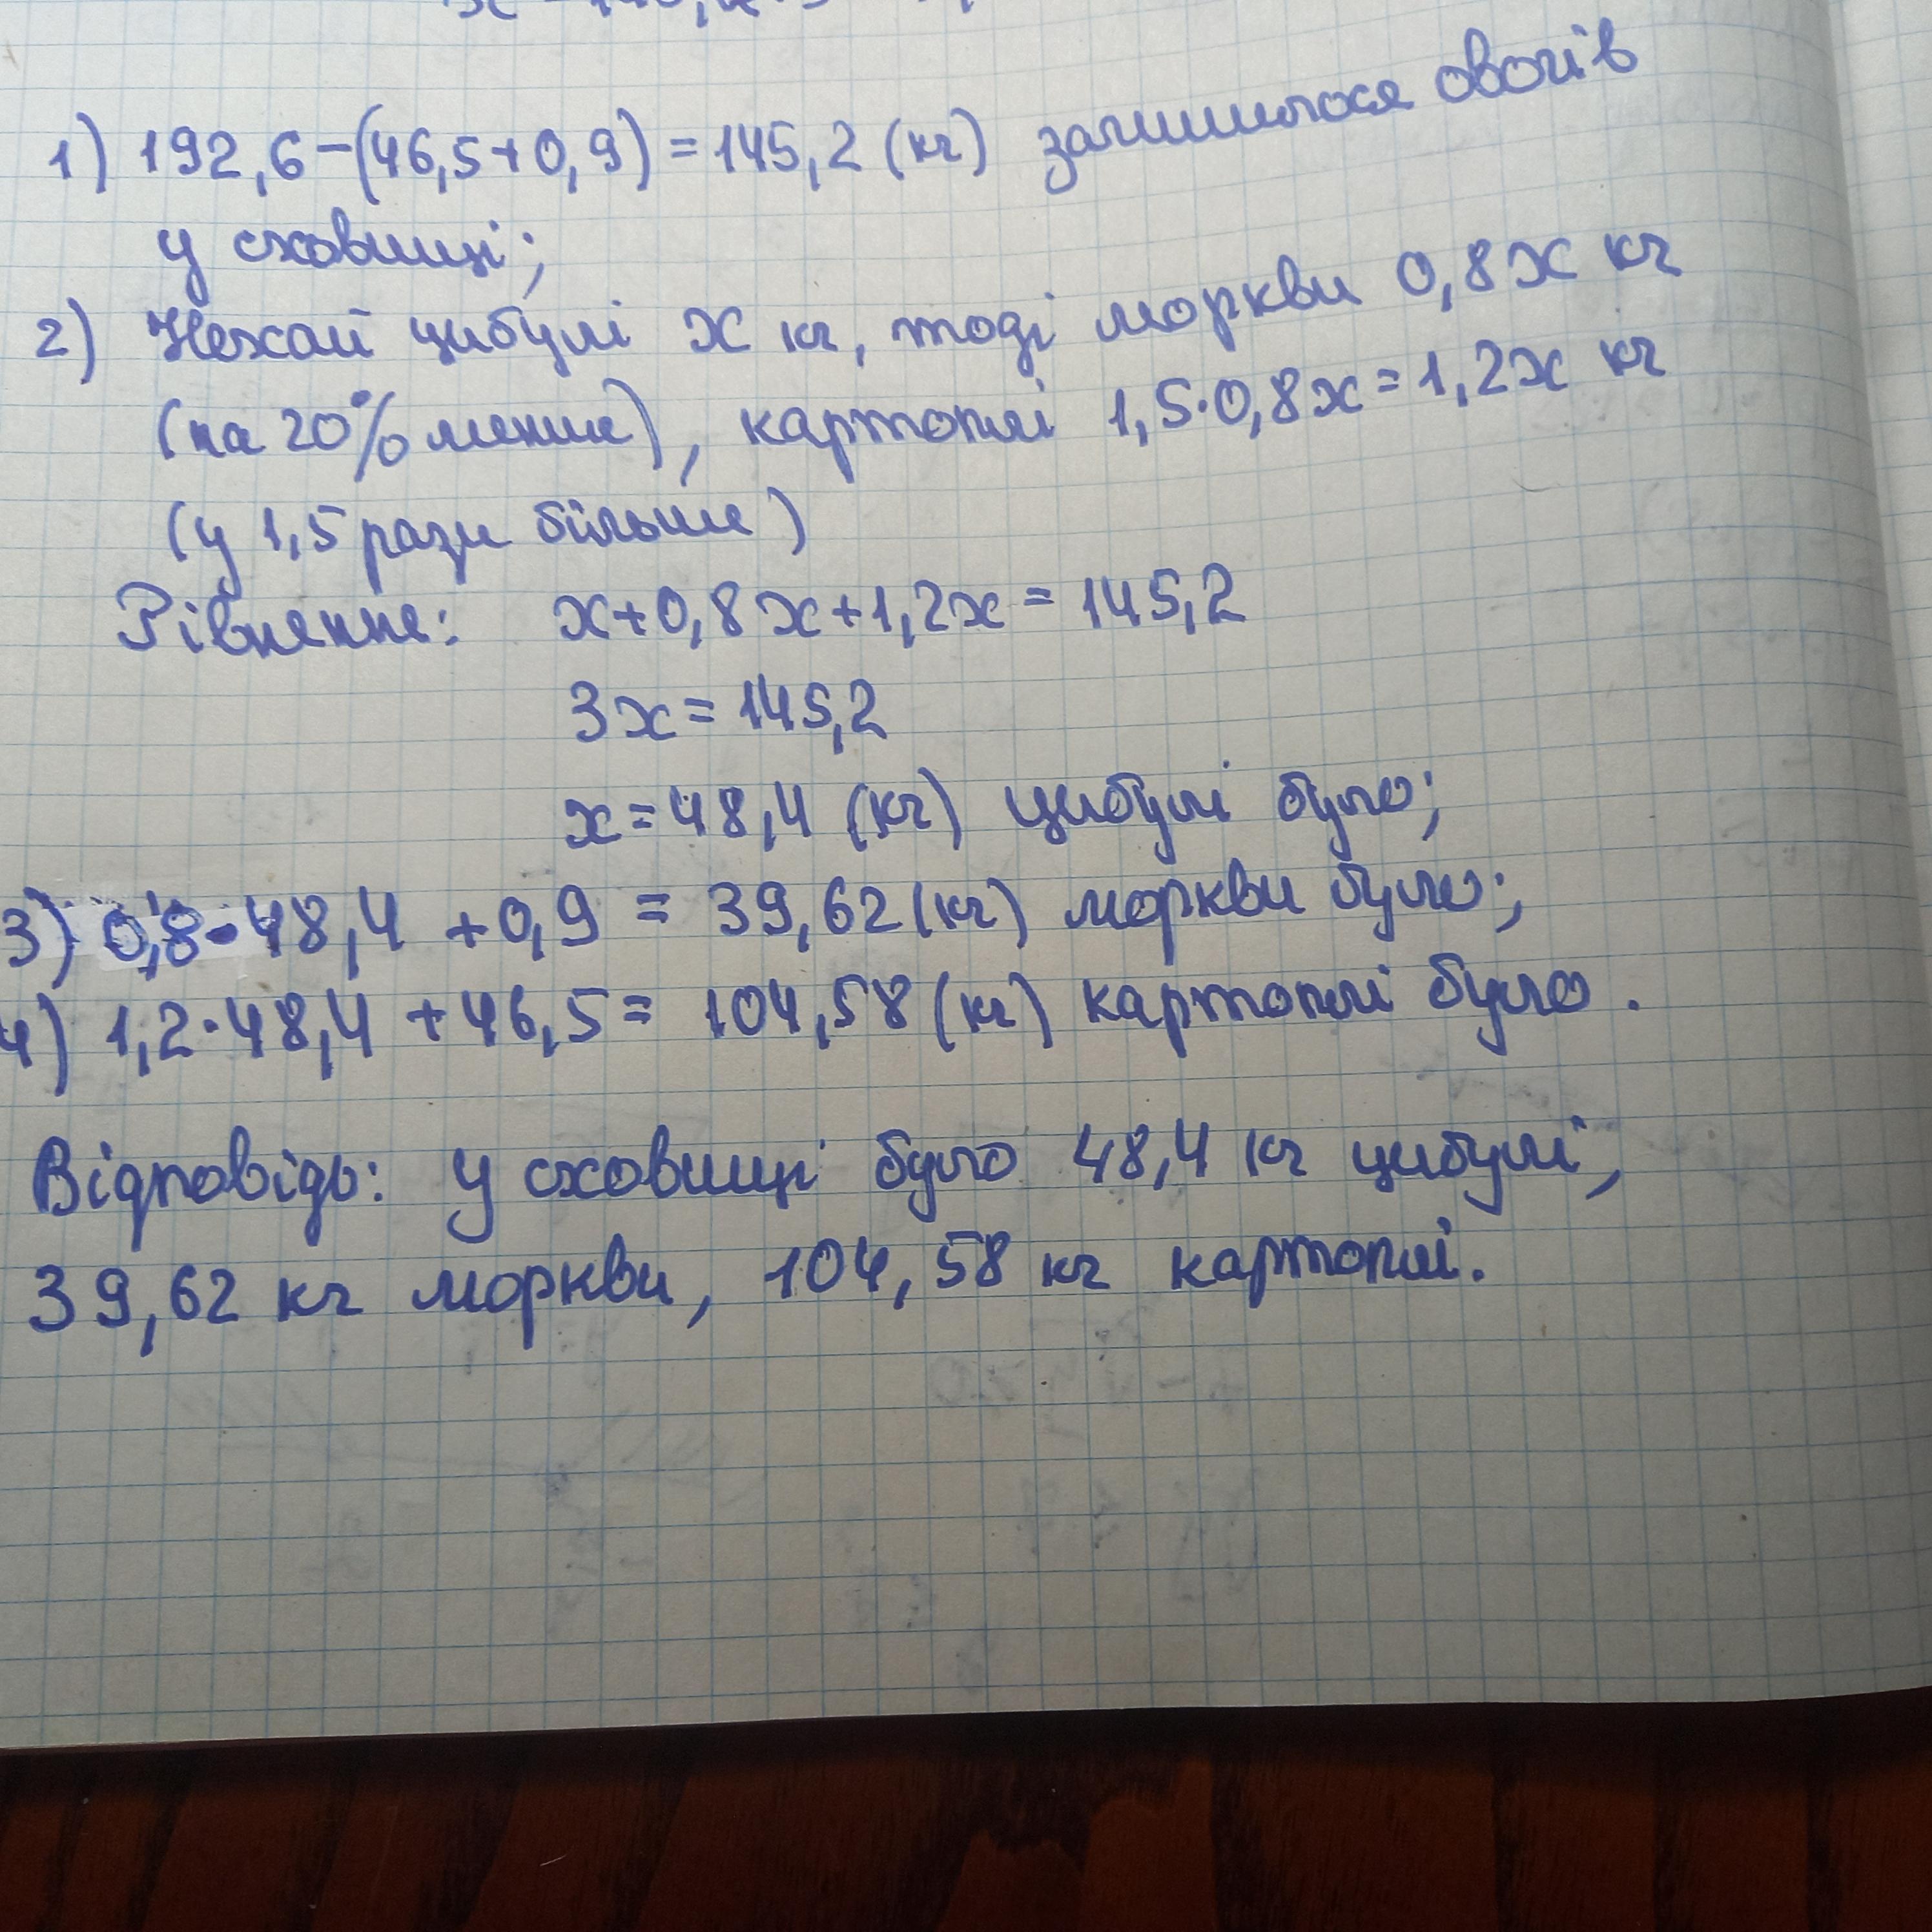 1) 192,6-(46,5+0,9)=145,2 (кг) залишилося овочів
у сховищі;
2) Нехай цибулі х кг, тоді моркви 0,8х кг
(на 20% менше), картоплі 1,5·0,8х=1,2х кг
(у 1,5 рази більше)
Рівняння: х+0,8х+1,2х=145,2
3х=145,2
х=48,4 (кг) цибулі було;
3) 0,8·48,4 +0,9 = 39,62 (кг) моркви було;
4) 1,2·48,4 +46,5= 104,58 (кг) картоплі було.
Відповідь: у сховищі було 48,4 кг цибулі,
39,62 кг моркви, 104,58 кг картоплі.